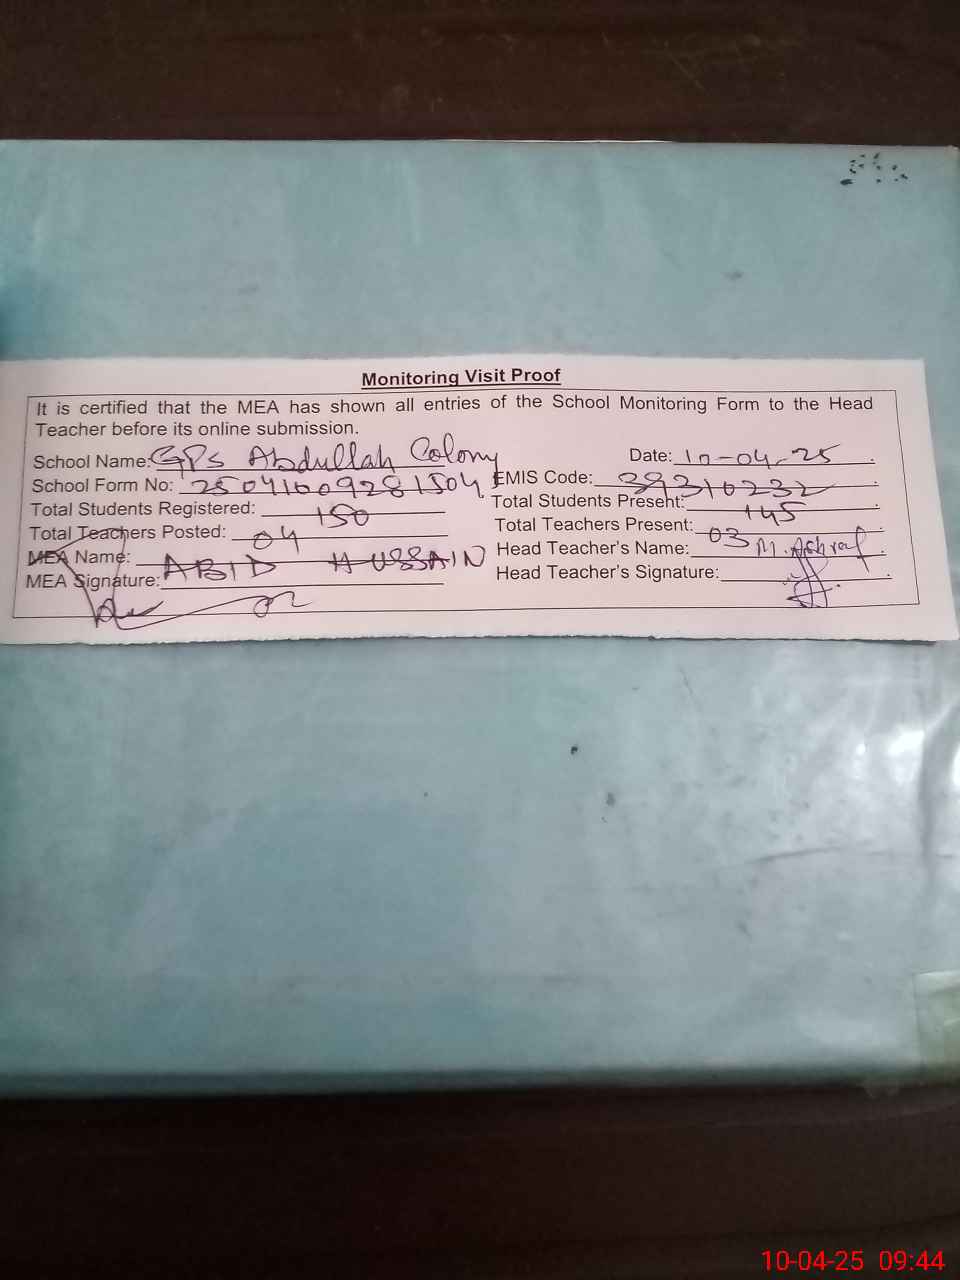 Monitoring Visit Proof
It is certified that the MEA has shown all entries of the School Monitoring Form to the Head
Teacher before its online submission.
School Name: GPS Abdullah Colony Date: 10-04-25
School Form No: 250416009281504 EMIS Code: 39310232
Total Students Registered: 150 Total Students Present: 145
Total Teachers Posted: 04 Total Teachers Present: 03
MEA Name: ABID HUSSAIN Head Teacher's Name: M. Ashraf
MEA Signature: Head Teacher's Signature:
10-04-25 09:44